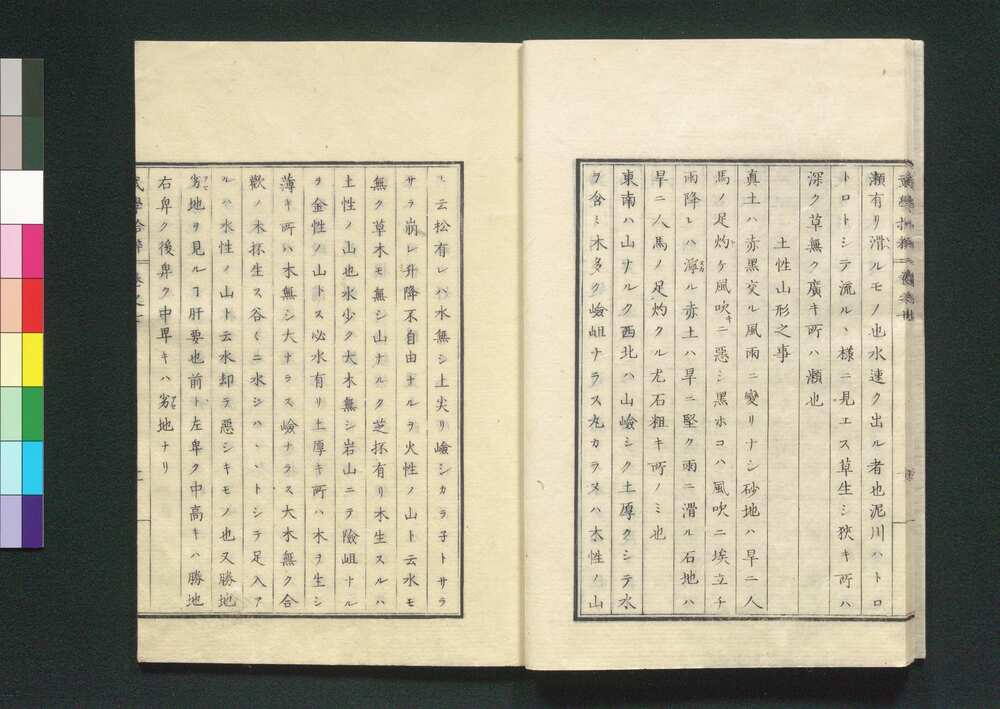 瀬有リ滑ルモノ也水速ク出ル者也泥川ハトロ
トロトシテ流ルヽ様ニ見エス草生シ狹キ所ハ
深ク草無ク廣キ所ハ瀬也
土性山形之事
真土ハ赤黒交ル風雨ニ變リナシ砂地ハ旱ニ人
馬ノ足灼ケ風吹キニ惡シ黒ホコハ風吹ニ埃立チ
雨降レハ濘ル赤土ハ旱ニ堅ク雨ニ滑ル石地ハ
旱ニ人馬ノ足灼クル尤石粗キ所ノミ也
東南ハ山ナルク西北ハ山嶮シク土厚クシテ水
ヲ含ミ木多ク嶮岨ナラス丸カラヌハ木性ノ山
ト云松有レハ水無シ上尖リ嶮シカラ子トサラ
サラ崩レ升降不自由ナルヲ火性ノ山ト云水モ
無ク草木モ無シ山ナルク芝抔有リ木生スルハ
土性ノ山也水少ク大木無シ岩山ニテ險岨ナル
ヲ金性ノ山トス必水有リ土厚キ所ハ木ヲ生シ
薄キ所ハ木無シ大ナラス嶮ナラス大木無ク合
歡ノ木抔生ス谷々ニ水シハヽヽトシテ足入ア
ルハ水性ノ山ト云水却テ惡シキモノ也又勝地
劣地ヲ見ルヿ肝要也前ト左卑ク中高キハ勝地
右卑ク後卑ク中卑キハ劣地ナリ